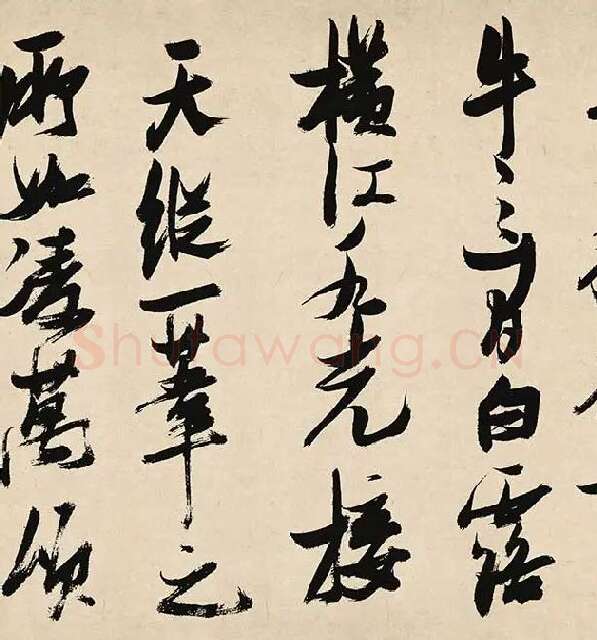 牛之間白露
橫江水光接
天縱一葦之
所如凌萬頃
Shufawang.cn